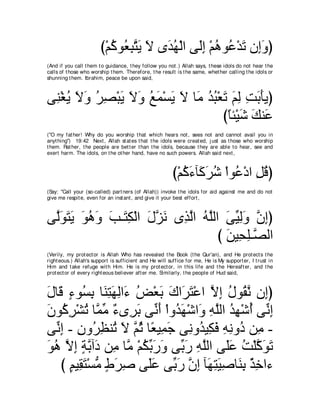 (وَإِن تَدْعُوهُمْ إِلَى الْهُدَى لاَ يَتَّبِعُوكُمْ)
(And if you call them to guidance, they follow you not.) Allah says, these idols do not hear the calls of those who worship them. Therefore, the result is the same, whether calling the idols or shunning them. Ibrahim, peace be upon said,
(يأَبَتِ لِمَ تَعْبُدُ مَا لاَ يَسْمَعُ وَلاَ يَبْصِرُ وَلاَ يُغْنِى عَنكَ شَيْئاً)
("O my father! Why do you worship that which hears not, sees not and cannot avail you in anything") 19:42 Next, Allah states that the idols were created, just as those who worship them. Rather, the people are better than the idols, because they are able to hear, see and exert harm. The idols, on the other hand, have no such powers. Allah said next,
(قُلِ ادْعُواْ شُرَكَآءَكُمْ)
(Say: "Call your (so-called) partners (of Allah)) invoke the idols for aid against me and do not give me respite, even for an instant, and give it your best effort,
(إِنَّ وَلِيِّىَ اللَّهُ الَّذِى نَزَّلَ الْكِتَـبَ وَهُوَ يَتَوَلَّى الصَّـلِحِينَ )
(Verily, my protector is Allah Who has revealed the Book (the Qur'an), and He protects the righteous.) Allah's support is sufficient and He will suffice for me, He is My supporter, I trust in Him and take refuge with Him. He is my protector, in this life and the Hereafter, and the protector of every righteous believer after me. Similarly, the people of Hud said,
(إِن نَّقُولُ إِلاَّ اعْتَرَاكَ بَعْضُ ءَالِهَتِنَا بِسُوءٍ قَالَ إِنِّى أُشْهِدُ اللَّهِ وَاشْهَدُواْ أَنِّى بَرِىءٌ مِّمَّا تُشْرِكُونَ - مِن دُونِهِ فَكِيدُونِى جَمِيعًا ثُمَّ لاَ تُنظِرُونِ - إِنِّى تَوَكَّلْتُ عَلَى اللَّهِ رَبِّى وَرَبِّكُمْ مَّا مِن دَآبَّةٍ إِلاَّ هُوَ ءاخِذٌ بِنَاصِيَتِهَآ إِنَّ رَبِّى عَلَى صِرَطٍ مُّسْتَقِيمٍ )